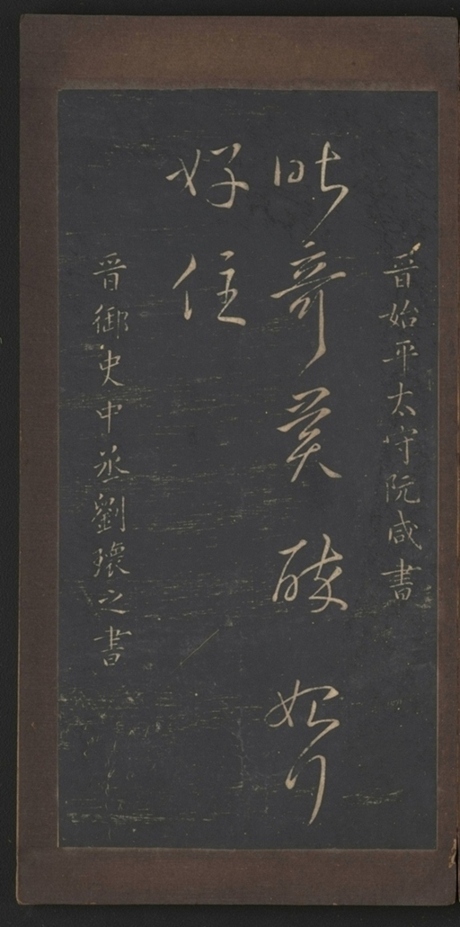 晉始平太守阮咸書
昨奇莫酥行
好住
晉御史中丞劉瓌之書